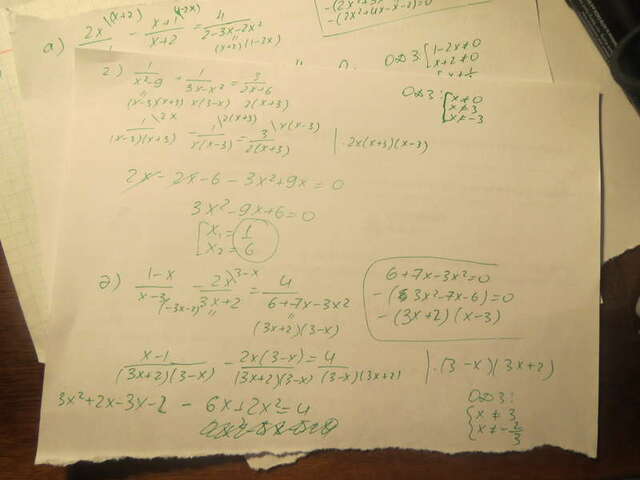 а) 2x \(x+2) - x+1 \(1-2x) / x+2 = 4 / 2-3x-2x²
(x+2)(1-2x)
-(2x²+4x-x-2)=0
ОДЗ: { 1-2x≠0
x+2≠0
г) 1/(x²-9) + 1/(3x-x²) = 3/(2x+6)
(x-3)(x+3) x(3-x) 2(x+3)
ОДЗ: { x≠0
x≠3
x≠-3
1 \2x / (x-3)(x+3) - 1 \2(x+3) / x(x-3) = 3 \x(x-3) / 2(x+3) | ·2x(x+3)(x-3)
2x - 2x - 6 - 3x²+9x = 0
3x²-9x+6=0
[ x₁ = 1
x₂ = 6
д) (1-x)/(x-3) - 2x \3-x / (3x+2) = 4/(6+7x-3x²)
(-3x-2) (3x+2)(3-x)
6+7x-3x²=0
-(3x²-7x-6)=0
-(3x+2)(x-3)
(x-1)/((3x+2)(3-x)) - 2x(3-x)/((3x+2)(3-x)) = 4/((3-x)(3x+2)) | ·(3-x)(3x+2)
3x²+2x-3x-2 - 6x+2x²=4
ОДЗ:
{ x ≠ 3
x ≠ -2/3